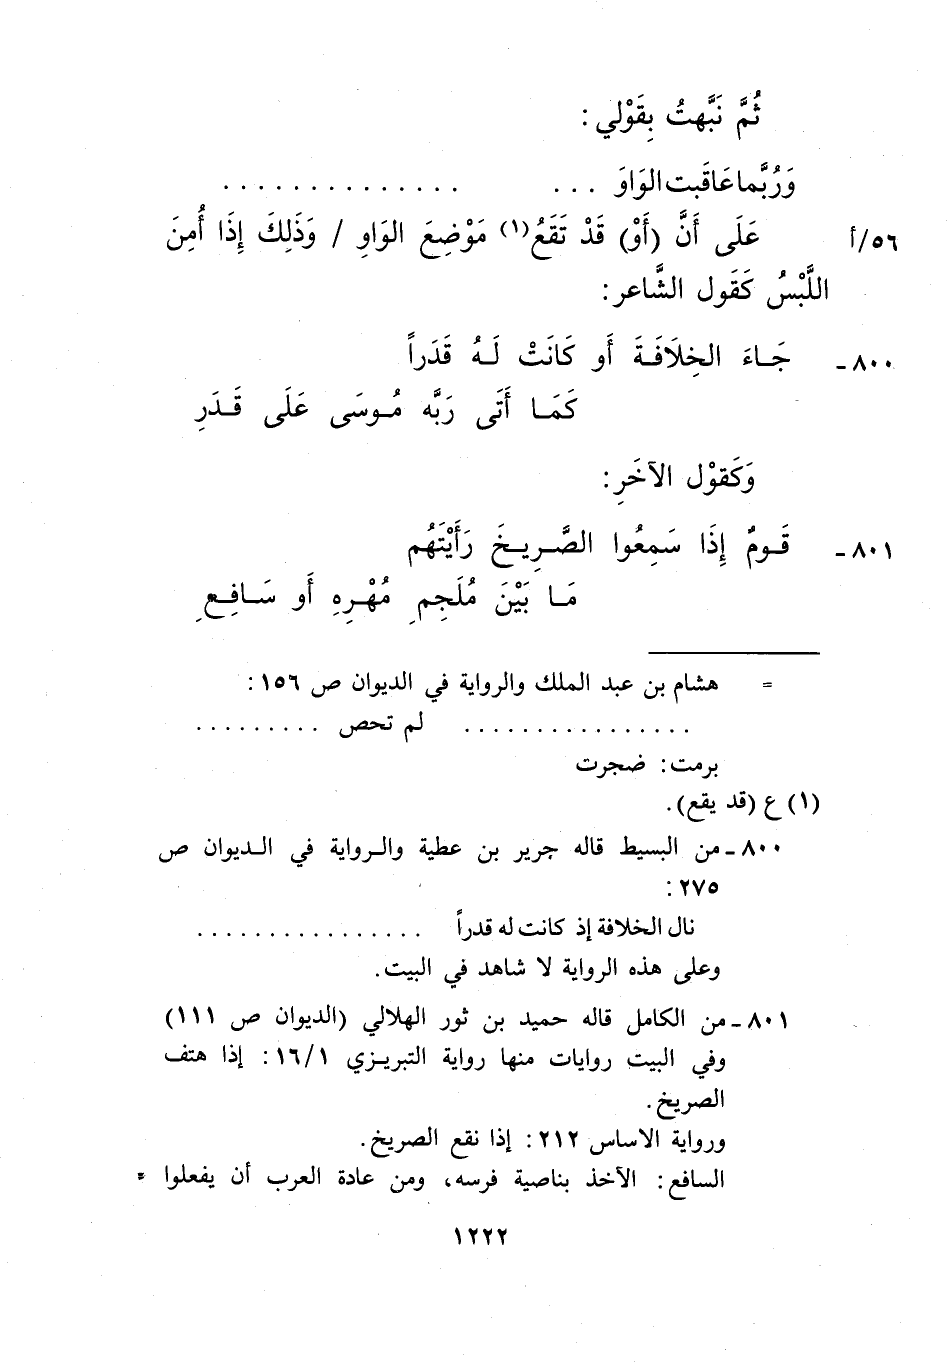 ثُمَّ نَبَّهتُ بِقَوْلي :
وَرُبَّما عَاقَبت الوَاوَ . . . . . . . . . . . . . . . . .
٥٦/أ عَلَى أَنَّ (أَوْ) قَدْ تَقَعُ(١) مَوْضِعَ الوَاوِ / وَذَلِكَ إِذَا أُمِنَ
اللَّبْسُ كَقَول الشَّاعر :
٨٠٠ ـ جَـاءَ الخِلَافَـةَ أَو كَانَتْ لَـهُ قَدَراً
كَمَـا أَتَى رَبَّه مُـوسَى عَلَى قَـدَرِ
وَكَقوْل الآخَرِ :
٨٠١ ـ قَـومٌ إِذَا سَمِعُوا الصَّـرِيـخَ رَأَيْتَهُم
مَـا بَيْنَ مُلَجِمِ مُهْـرِهِ أَو سَـافِـعِ
= هشام بن عبد الملك والرواية في الديوان ص ١٥٦ :
. . . . . . . . . . . . . . . . لم تحص . . . . . . . . .
برمت : ضجرت
(١) ع (قد يقع) .
٨٠٠ ـ من البسيط قاله جرير بن عطية والـرواية في الـديوان ص
٢٧٥ :
نال الخلافة إذ كانت له قدراً . . . . . . . . . . . . . . . .
وعلى هذه الرواية لا شاهد في البيت .
٨٠١ ـ من الكامل قاله حميد بن ثور الهلالي (الديوان ص ١١١)
وفي البيت روايات منها رواية التبريـزي ١٦/١ : إذا هتف
الصريخ .
ورواية الاساس ٢١٢ : إذا نقع الصريخ .
السافع : الآخذ بناصية فرسه، ومن عادة العرب أن يفعلوا =
١٢٢٢